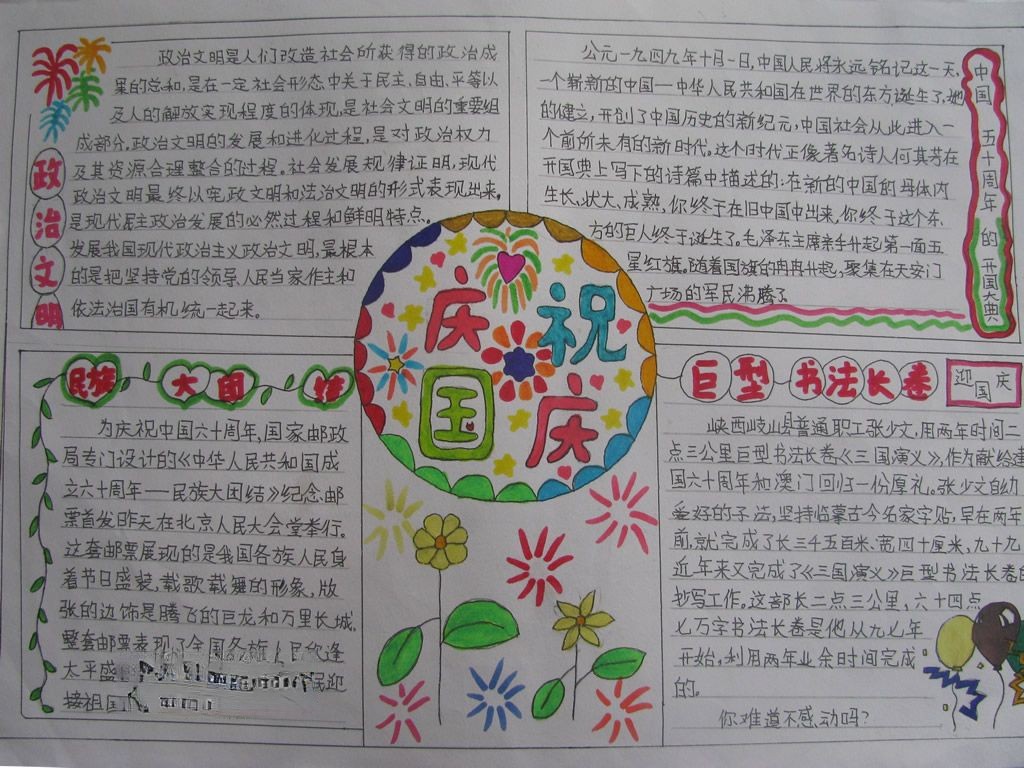 政治文明
政治文明是人们改造社会所获得的政治成
果的总和,是在一定社会形态中关于民主,自由,平等以
及人的解放实现程度的体现,是社会文明的重要组
成部分,政治文明的发展和进化过程,是对政治权力
及其资源合理整合的过程。社会发展规律证明,现代
政治文明最终以宪政文明和法治文明的形式表现出来,
是现代民主政治发展的必然过程和鲜明特点。
发展我国现代政治主义政治文明,最根本
的是把坚持党的领导人民当家作主和
依法治国有机统一起来。
公元一九四九年十月一日,中国人民将永远铭记这一天,
一个崭新的中国—中华人民共和国在世界的东方诞生了,她
的健立,开创了中国历史的新纪元,中国社会从此进入一
个前所未有的新时代。这个时代正像著名诗人何其芳在
开国典上写下的诗篇中描述的:在新的中国的母体内
生长、状大、成熟,你终于在旧中国中出来,你终于这个东
方的巨人终于诞生了。毛泽东主席亲手升起第一面五
星红旗。随着国旗的冉冉升起,聚集在天安门
广场的军民沸腾了
中国 五十周年 的 开国大典
庆祝
国庆
民族大团结
为庆祝中国六十周年,国家邮政
局专门设计的《中华人民共和国成
立六十周年——民族大团结》纪念邮
票首发昨天在北京人民大会堂举行。
这套邮票展现的是我国各族人民身
着节日盛装,载歌载舞的形象,版
张的边饰是腾飞的巨龙和万里长城,
整套邮票表现了全国各族人民欣逢
太平盛
民迎
接祖国
巨型书法长卷
迎国庆
峡西岐山县普通职工张少文,用两年时间二
点三公里巨型书法长卷《三国演义》,作为献给建
国六十周年和澳门回归一份厚礼。张少文自幼
爱好的子法,坚持临摹古今名家字贴,早在两年
前,就完成了长三千五百米、宽四十厘米,九十九
近年来又完成了《三国演义》巨型书法长卷的
抄写工作。这部长二点三公里,六十四点
七万字书法长卷是他从九七年
开始。利用两年业余时间完成
的。
你难道不感动吗?